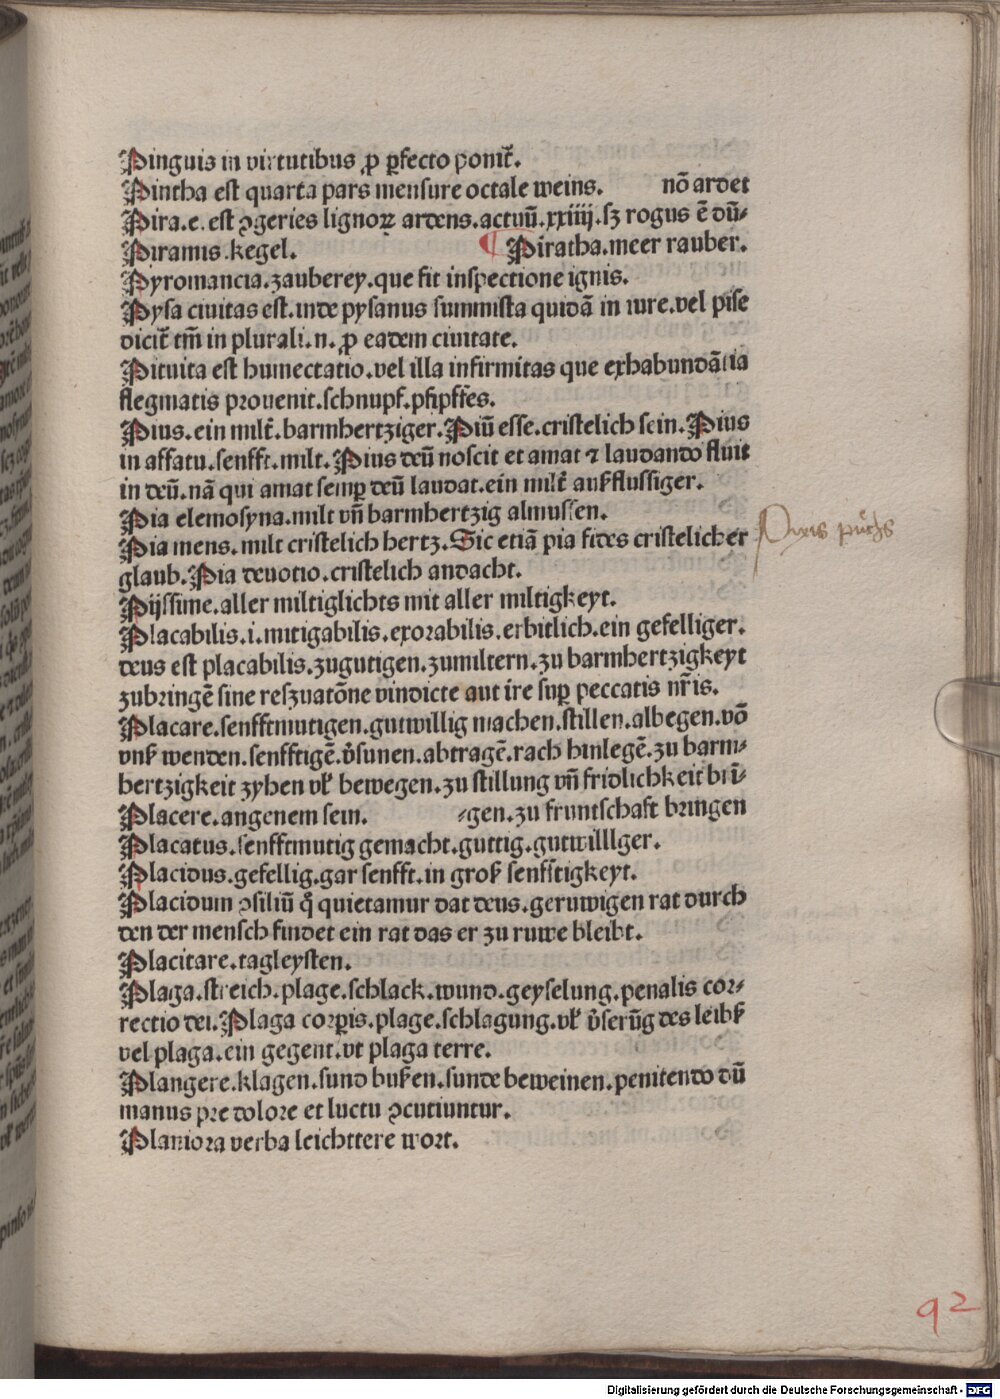 Pinguis in virtutibus ꝓ ꝑfecto ponit᷑.
Pintha est quarta pars mensure octale weins. nō ardet
Pira.e.est ꝯgeries lignoꝝ ardens.actuū.xxiiij.sꝫ rogus ē dū⸗
Piramis.kegel. ¶ Piratha.meer rauber.
Pyromancia.zauberey.que fit inspectione ignis.
Pysa ciuitas est.inde pysanus summista quidā in iure.vel pise
dicit᷑ tm̄ in plurali.n.ꝓ eadem ciuitate.
Pituita est humectatio.vel illa infirmitas que exhabundātia
flegmatis prouenit.schnupf.pfipff̄es.
Pius.ein milt᷑.barmhertziger.Piū esse.cristelich sein.Pius
in affatu.senfft.milt.Pius deū noscit et amat ⁊ laudando fluit
in deū.nā qui amat semꝑ deū laudat.ein milt᷑ außflussiger.
Pia elemosyna.milt vn̄ barmhertzig almussen.
Pia mens.milt cristelich hertz.Sic etiā pia fides cristelicher
glaub.Pia deuotio.cristelich andacht.
Pijssime.aller miltiglichts mit aller miltigkeyt.
Placabilis.i.mitigabilis.exorabilis.erbitlich.ein gefelliger.
deus est placabilis.zugutigen.zumiltern.zu barmhertzigkeyt
zubringē sine resꝫuatōne vindicte aut ire suꝑ peccatis nr̄is.
Placare.senfftmutigen.gutwillig machen.stillen.albegen.vō
vnß wenden.senfftigē.v̓sunen.abtragē.rach hinlegē.zu barm⸗
hertzigkeit zyhen vß bewegen.zu stillung vn̄ fridlichkeit brī⸗
Placere.angenem sein. ⸗gen.zu fruntschaft bringen
Placatus.senfftmutig gemacht.guttig.gutwilllger.
Placidus.gefellig.gar senfft.in groß senfftigkeyt.
Placidum ꝯsiliū q̊ quietamur dat deus.geruwigen rat durch
den der mensch findet ein rat das er zu ruwe bleibt.
Placitare.tagleysten.
Plaga.streich.plage.schlack.wund.geyselung.penalis cor⸗
rectio dei.Plaga corꝑis.plage.schlagung.vß v̓serūg des leibß
vel plaga.ein gegent.vt plaga terre.
Plangere.klagen.sund bußen.sunde beweinen.penitendo dū
manus pre dolore et luctu ꝯcutiuntur.
Planiora verba leichttere wort.
Pixis
92
Digitalisierung gefördert durch die Deutsche Forschungsgemeinschaft - DFG